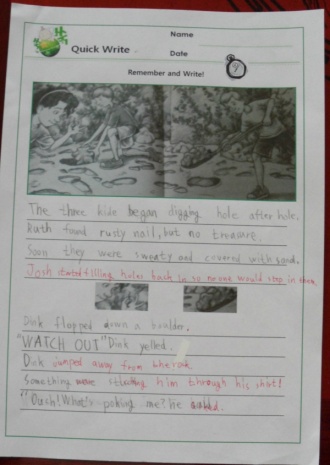 Name
Quick Write
Date
9
Remember and Write!
The three kids began digging hole after hole.
Ruth found rusty nail, but no treasure.
Soon they were sweaty and covered with sand.
Josh started filling holes back in so no one would step in them.
Dink flopped down a boulder.
"WATCH OUT" Dink yelled.
Dink jumped away from the rock
Something were sticking him through his shirt!
"Ouch! What's poking me? he